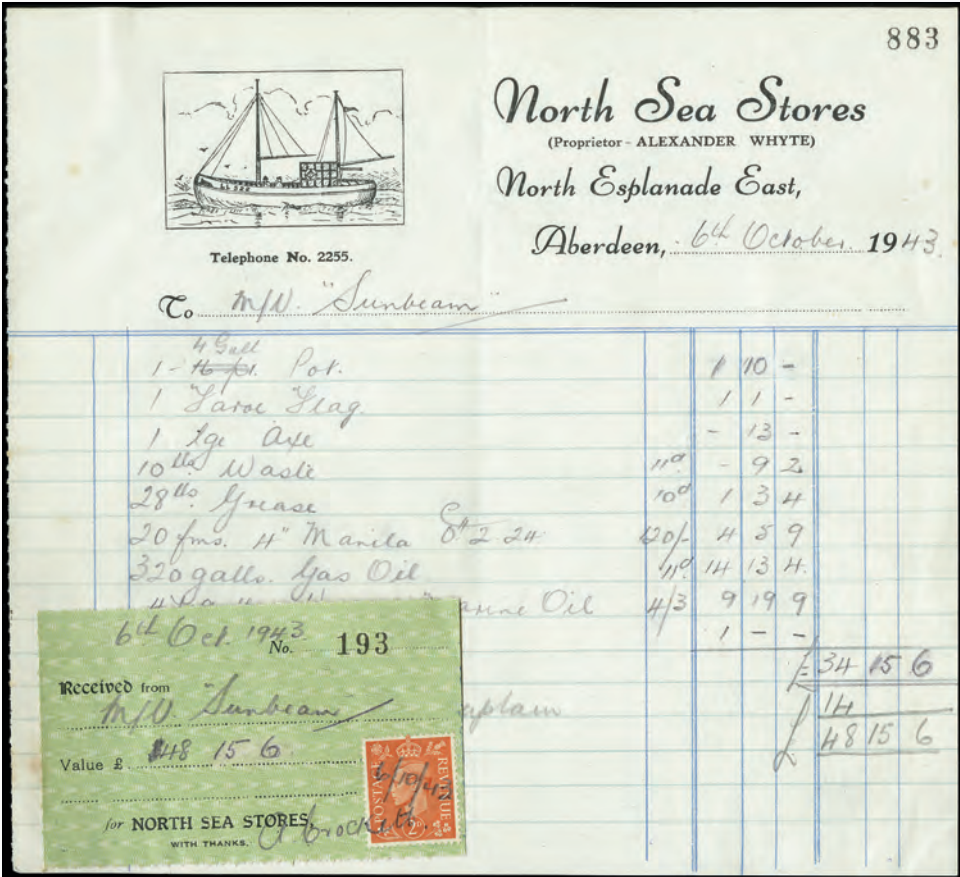 883
North Sea Stores
(Proprietor - ALEXANDER WHYTE)
North Esplanade East,
Telephone No. 2255.
Aberdeen, 6th October. 1943.
To M/V. "Sunbeam"
4 Gall
1 - Pot. 1 10 -
1 "Faroe Flag. 1 1 -
1 Lge Axe - 13 -
10 lbs Waste 11d - 9 2
28 lbs. Grease 10d 1 3 4
20 fms. 4" Manila 2 24 120/- 4 5 9
320 galls. Gas Oil 11d. 14 13 4.
Oil 4/3 9 19 9
1 - -
£ 34 15 6
14
£ 48 15 6
6th Oct. 1943
No. 193
Received from
M/V. "Sunbeam"
Value £ 48 15 6
for NORTH SEA STORES,
WITH THANKS.
POSTAGE
REVENUE